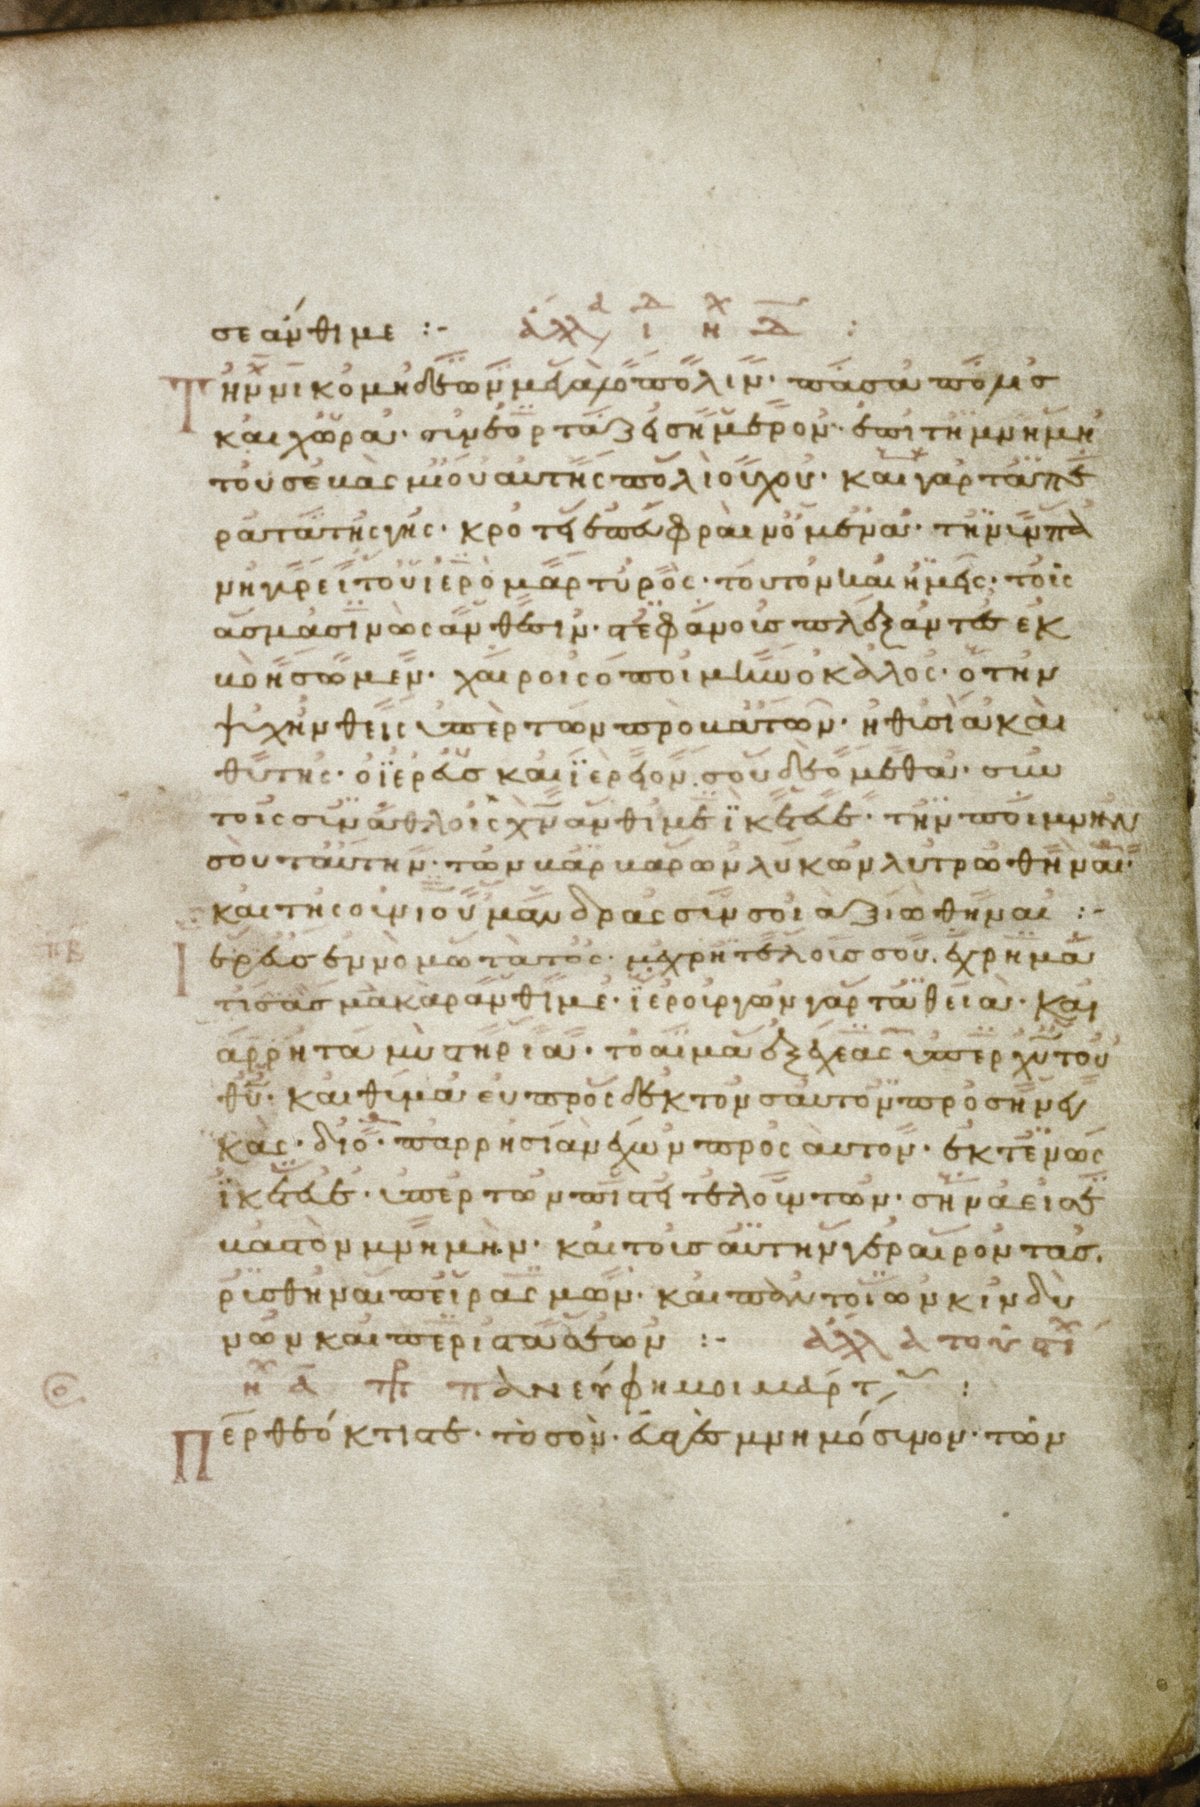 σε άνθιμε :-
Τὴν νικομηδέων μεγαλόπολιν· πᾶσα πόλις
καὶ χώρα· συνεορτάζει σήμερον· ἐπὶ τῆ μνήμη
τοῦ σεβασμίου αὐτῆς πολιούχου· καὶ γὰρ τὰ πέ
ρατα τῆς γῆς· κροτεῖ ἐπευφραινόμενα· τὴν πα
νήγυριν τοῦ ἱερομάρτυρος· τοῦτον καὶ ἡμεῖς· τοῖς
ἄσμασιν ὡς ἄνθεσιν· στεφάνους πλέξαντες ἐκ
βοήσωμεν· χαίροις ὁ ποιμὴν ὁ καλός· ὁ τὴν
ψυχὴν θεὶς ὑπὲρ τῶν προβάτων· ἡ θυσία καὶ
θύτης· ὁ ἱερεὺς καὶ ἱερεῖον· σοῦ δεόμεθα· σὺν
τοῖς συνάθλοις χν ἄνθιμε ἱκέτευε· τὴν ποίμνην
σου ταύτην· τῶν βαρβάρων λύκων λυτρωθῆναι·
καὶ τῆς οὐνίου μάνδρας σὺν σοὶ ἀξιωθῆναι :-
Ἱερεὺς ἐννομώτατος· μέχρι τέλους σου. ἐχρημά
τισας μάκαρ ἄνθιμε· ἱερουργῶν γὰρ τὰ θεῖα· καὶ
ἄρρητα μυστήρια· τὸ αἷμα ἐξέχεας ὑπὲρ χυ τοῦ
θυ· καὶ θῦμα εὐπρόσδεκτον σαυτὸν προσήνεγ
κας· διὸ· παρρησίαν ἔχων πρὸς αὐτόν· ἐκτενῶς
ἱκέτευε· ὑπὲρ τῶν πίστει τελούντων· σὴν ἀεισέ
βαστον μνήμην· καὶ τοὺς αὐτὴν γεραίροντας.
ῥυσθῆναι πειρασμῶν· καὶ παντοίων κινδύ
νων καὶ περιστάσεων :-
πανεύφημοι μάρτ :
Περ θεόκτιστε· τὸ σὸν· ἔστιν μνημόσυνον· τῶν